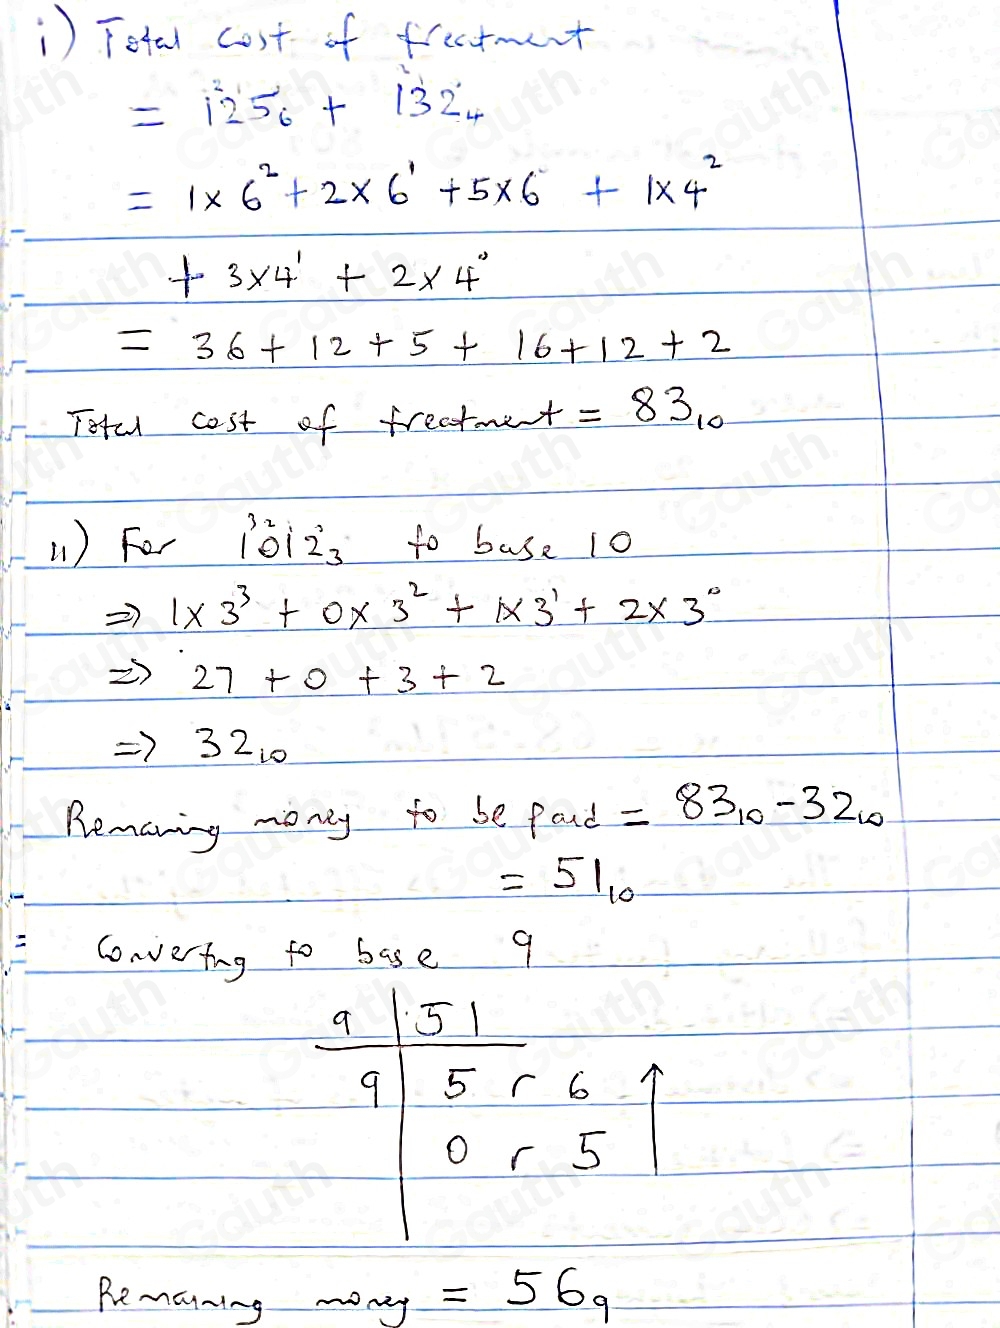 i) Total cost of treatment
= 1²2¹5°₆ + 1²3¹2°₄
= 1 x 6² + 2 x 6¹ + 5 x 6° + 1 x 4²
+ 3 x 4¹ + 2 x 4°
= 36 + 12 + 5 + 16 + 12 + 2
Total cost of treatment = 83₁₀
ii) For 1³0²1¹2°₃ to base 10
=> 1 x 3³ + 0 x 3² + 1 x 3¹ + 2 x 3°
=> 27 + 0 + 3 + 2
=> 32₁₀
Remaining money to be paid = 83₁₀ - 32₁₀
= 51₁₀
Converting to base 9
9 | 51
9 | 5 r 6
0 r 5
Remaining money = 56₉